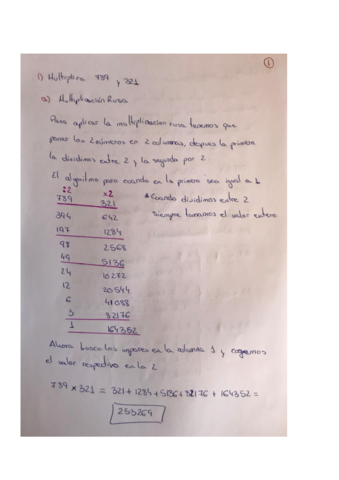 1
1) Multiplica 789 y 321
a) Multiplicación Rusa
Para aplicar la multiplicacion rusa tenemos que
poner los 2 números en 2 columnas, despues la primera
la dividimos entre 2 y la segunda por 2.
El algoritmo para cuando en la primera sea igual a 1
:2 x2
789 321 * Cuando dividimos entre 2
394 642 siempre tomamos el valor entero
197 1284
98 2568
49 5136
24 10272
12 20544
6 41088
3 82176
1 164352
Ahora busco los impares en la columna 1 y cogemos
el valor respectivo en la 2
789 × 321 = 321 + 1284 + 5136 + 82176 + 164352 =
253269